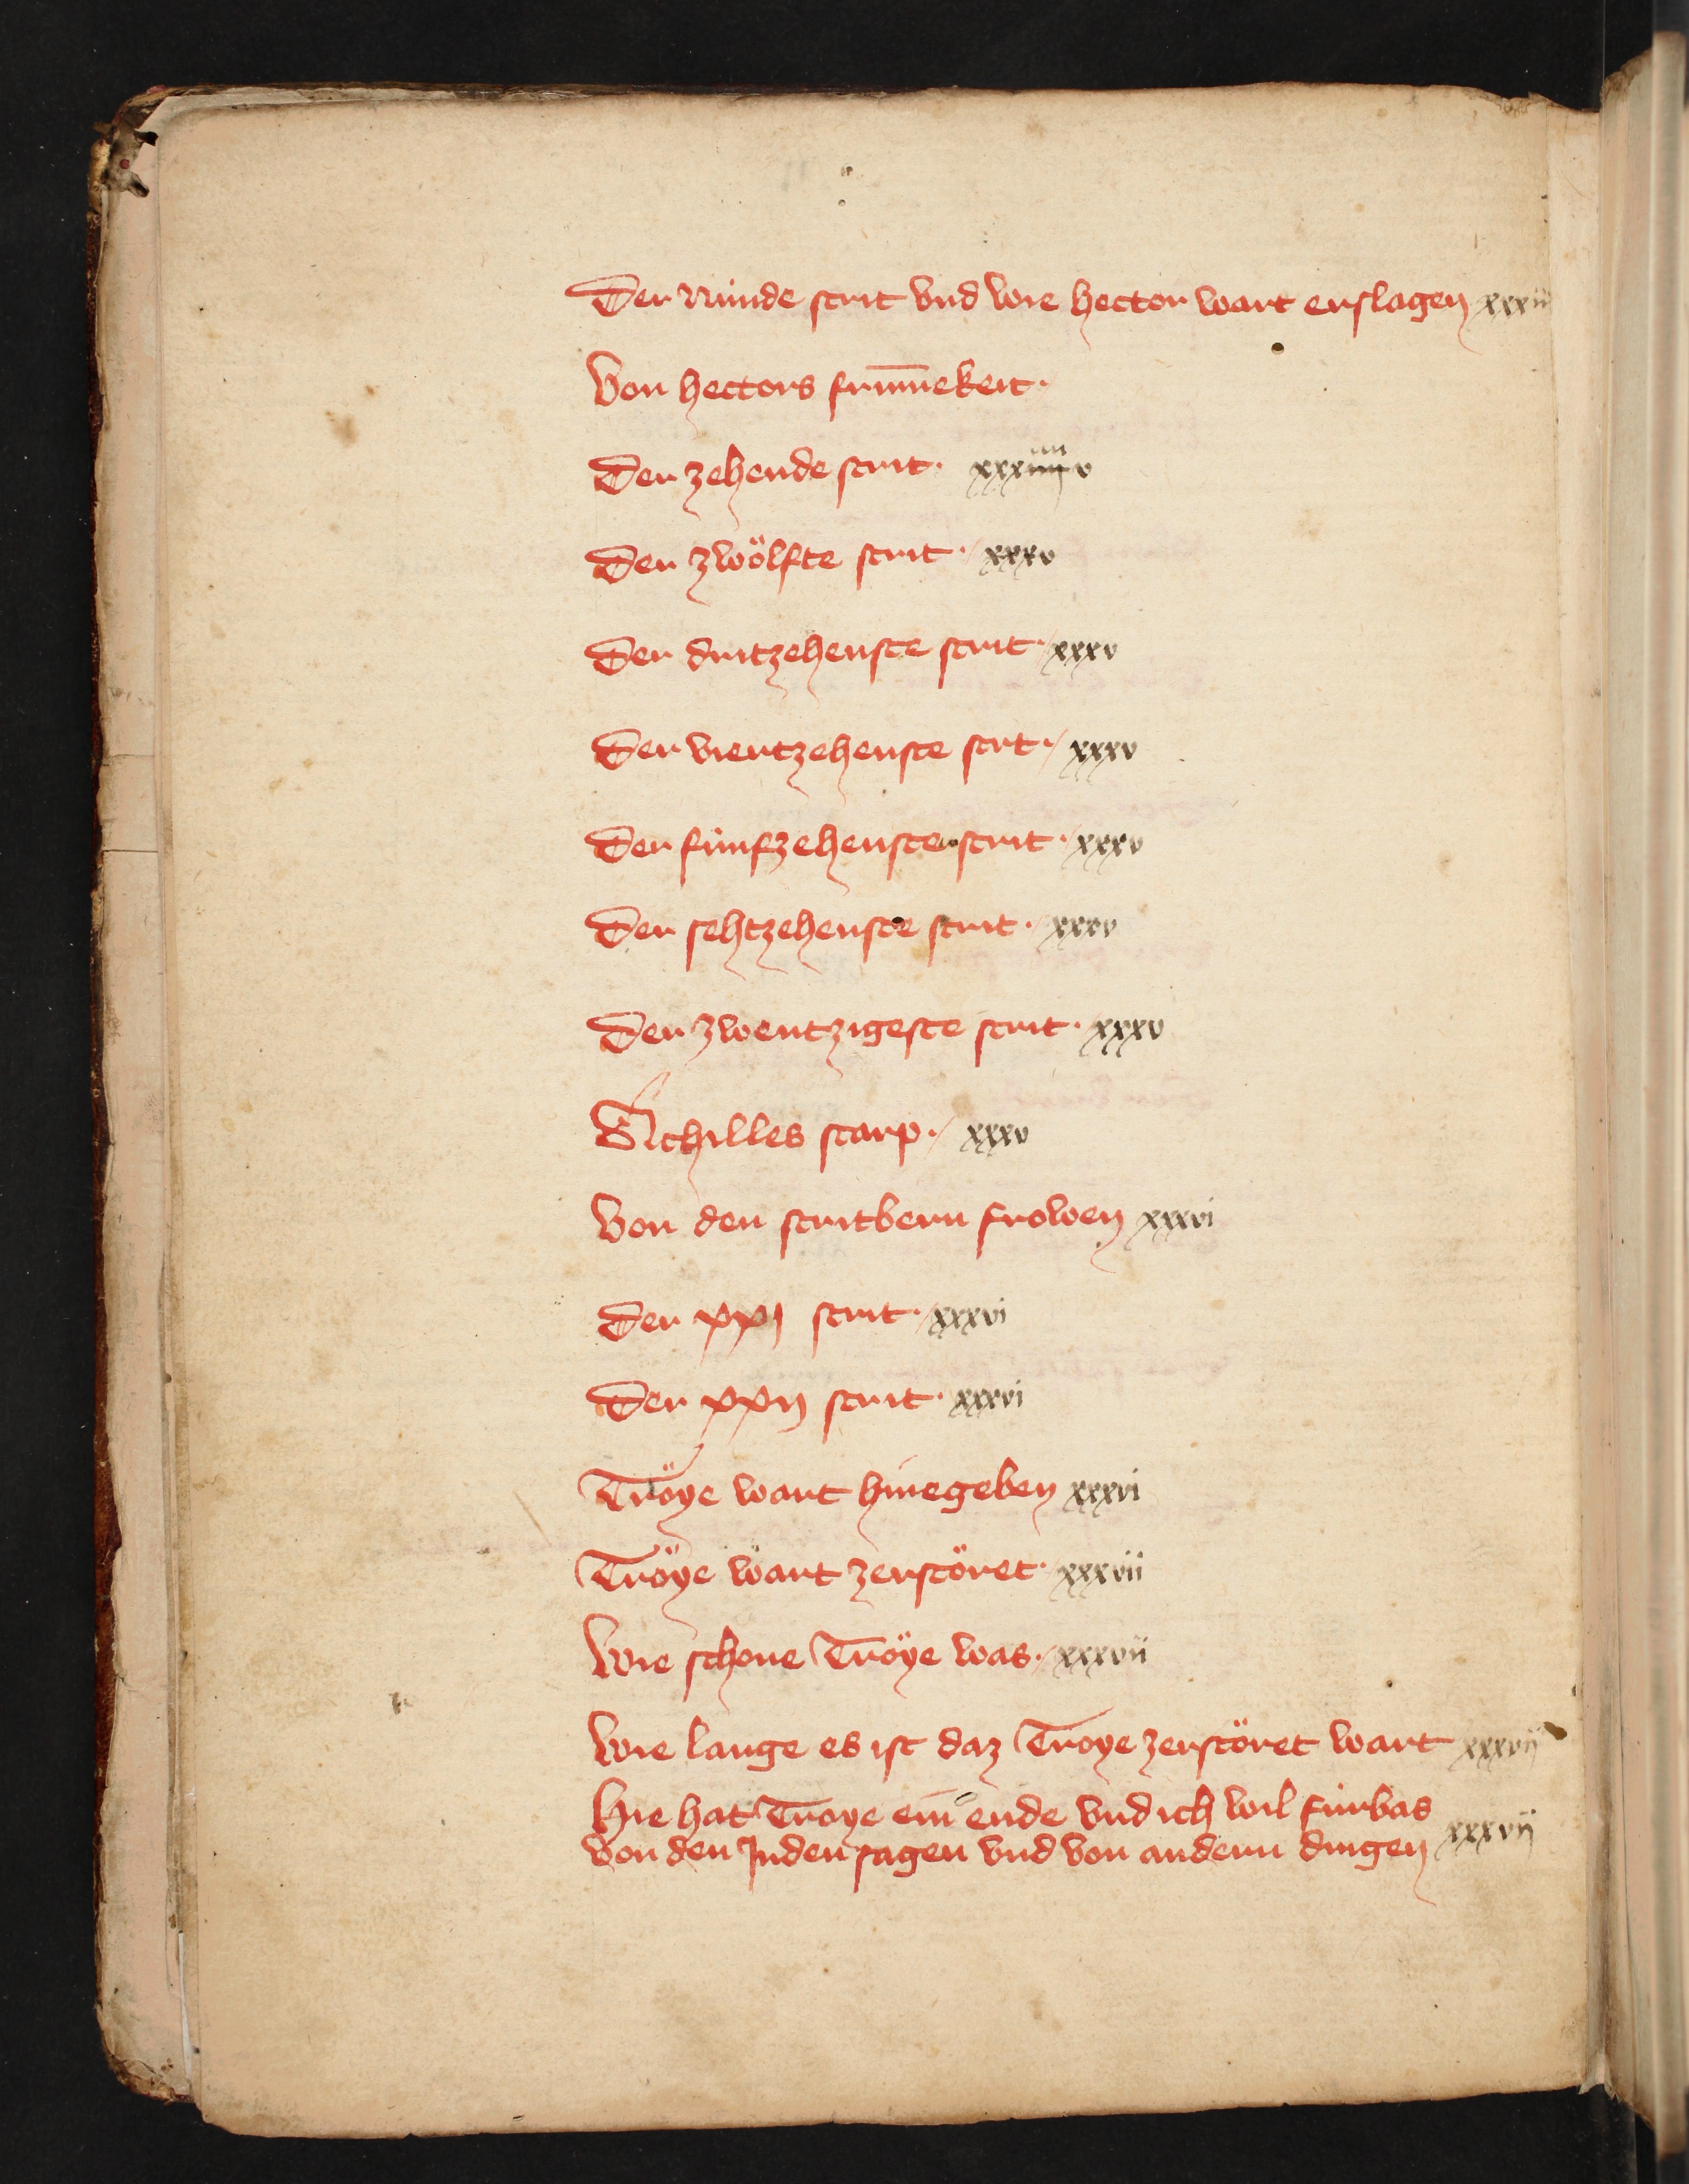 Der Nunde strit vnd wie hector wart erslagen xxxiii
Von hectors frum̄ekeit·
Der zehende strit· xxxiiii v
Der zwölfte strit· xxxv
Der dritzehenste strit· xxxv
Der viertzehenste strt· xxxv
Der funfzehenste strit· xxxv
Der sehtzehenste strit· xxxv
Der zwentzigeste strit· xxxv
Achilles starp· xxxv
Von den stritbern frowen xxxvi
Der xxj strit· xxxvi
Der xxij strit· xxxvi
Tröye wart hinegeben xxxvi
Tröye wart zerstöret· xxxvii
Wie schone Tröye was· xxxvii
Wie lange es ist daz Troye zerstöret wart xxxvij
Hie hat Troye ein ende vnd ich wil furbas
von den Juden sagen vnd von andern dingen xxxvij